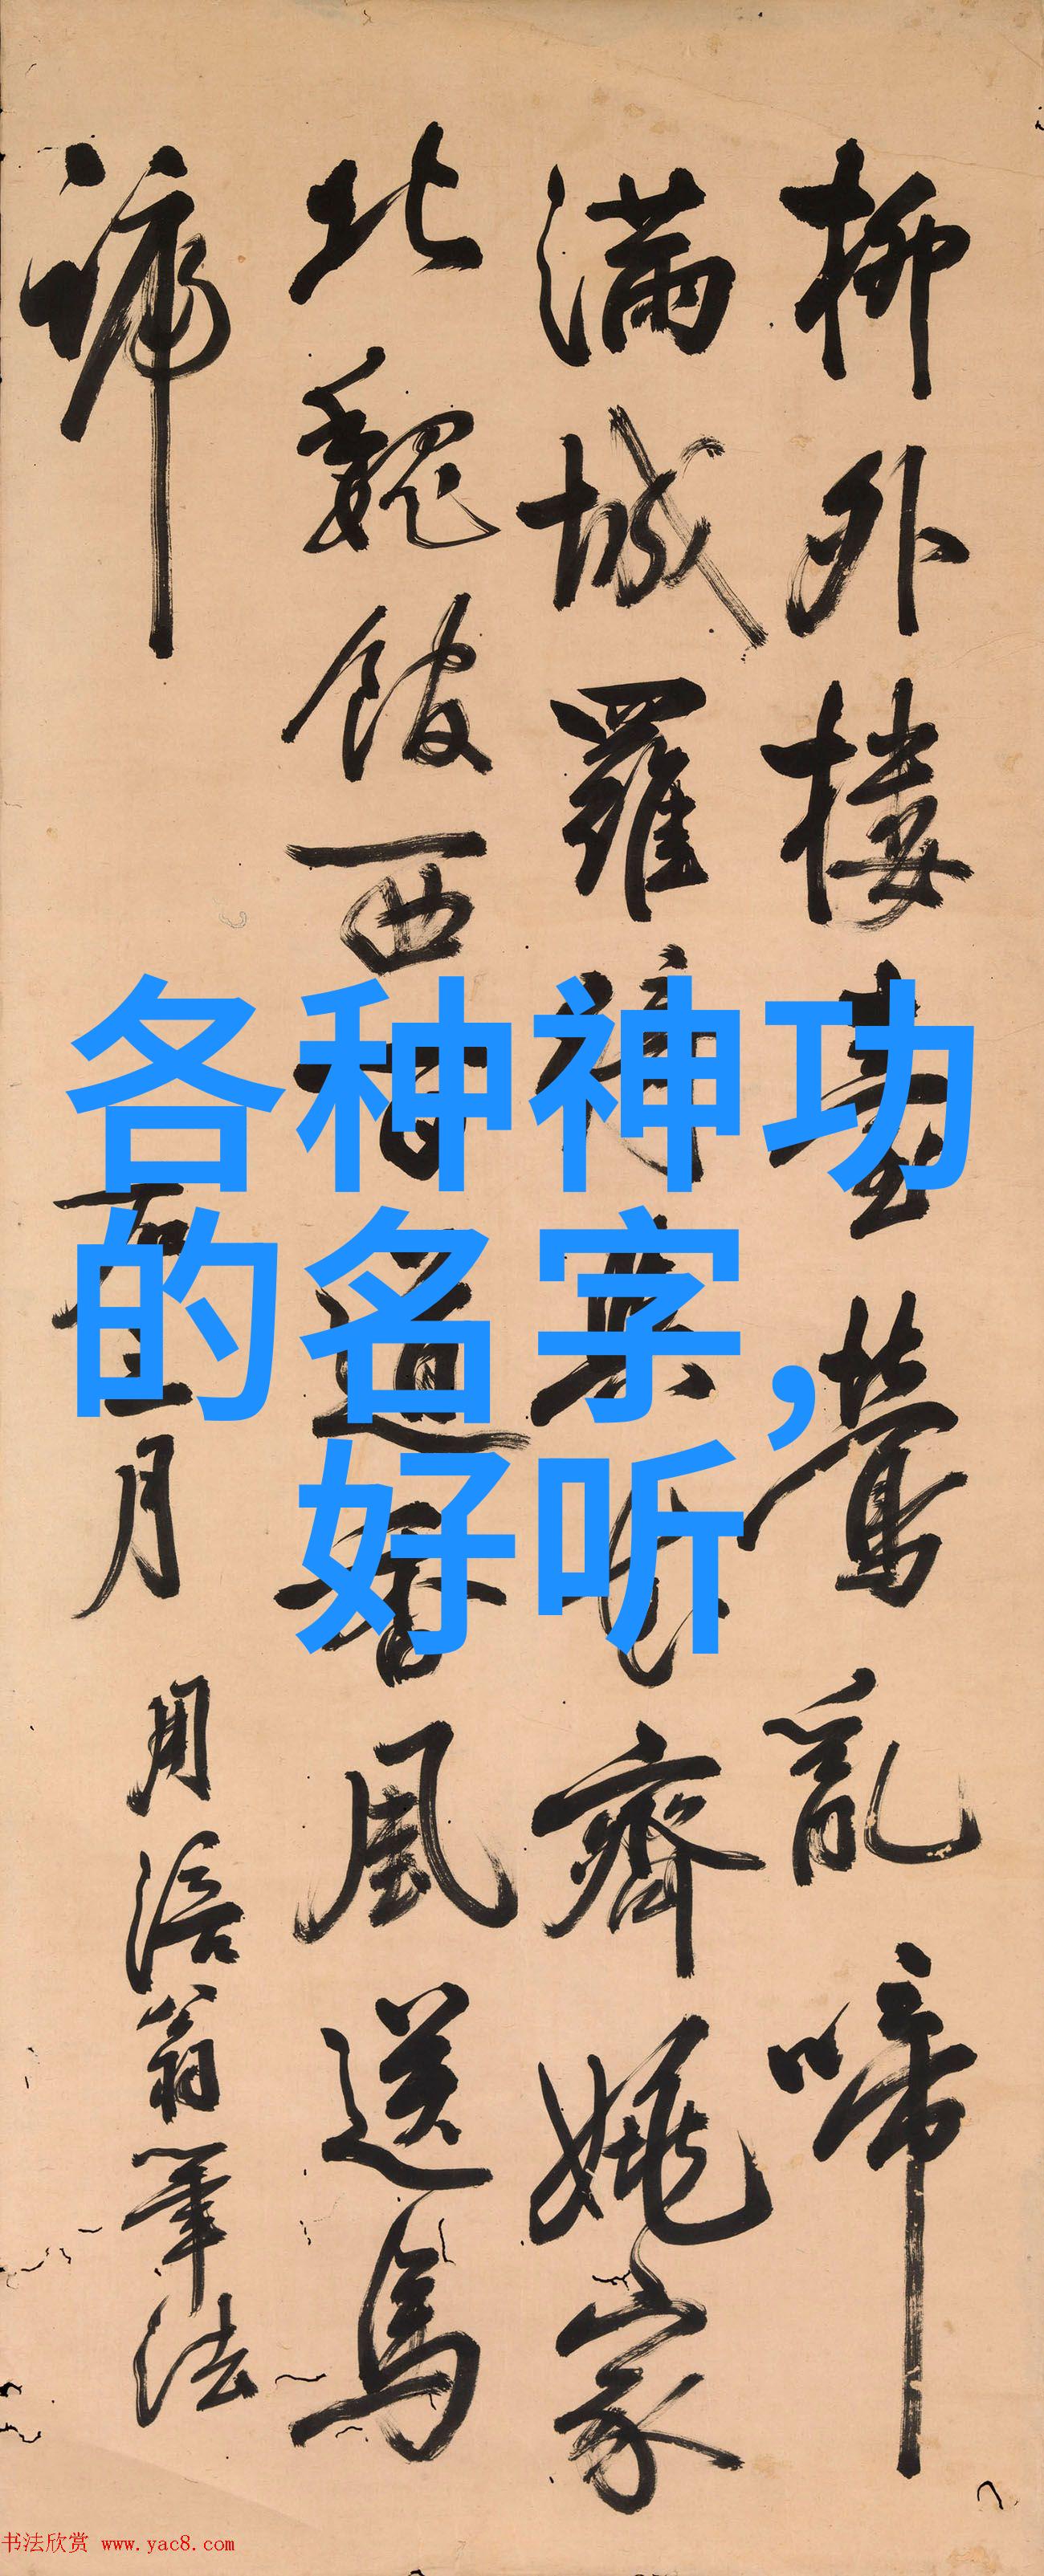 柳外樓臺鶯亂啼
滿城羅齊姚家
北魏西香風送馬
蹄
月
用涪翁筆法
各种神功
的名字,
好听
书法欣赏 www.yac8.com